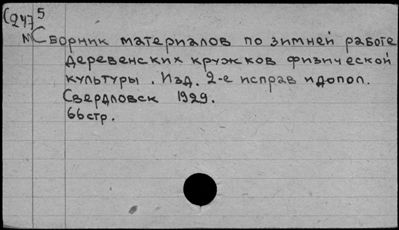 С 5
247
N Сборник материалов по зимней работе
деревенских кружков физической
культуры. Изд. 2-е исправ и допол.
Свердловск 1929.
66 стр.